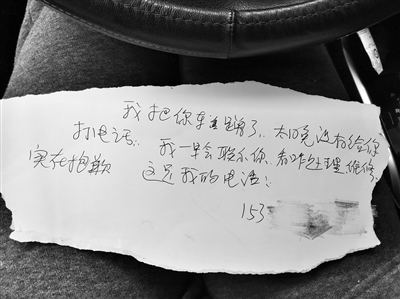 我把你车蹭了，太晚没有给你
打电话，我一早会联系你，看咋处理维修，
实在抱歉 这是我的电话：
153